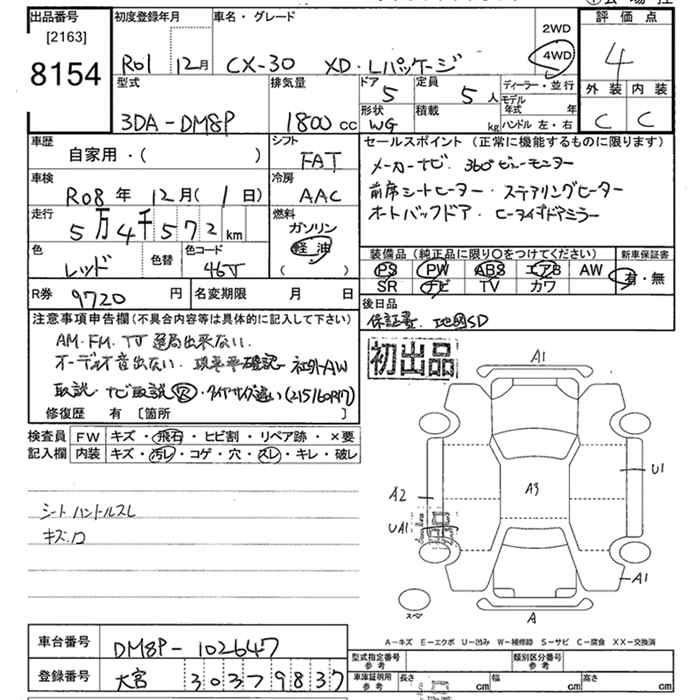 出品番号
[2163]
8154
初度登録年月
R01 12月
車名・グレード
CX-30 XD・Lパッケージ
2WD
4WD
評価点
4
外装 内装
C C
型式
3DA-DM8P
排気量
1800 cc
ドア
5
定員
5人
形状
WG
積載
kg
ディーラー・並行
モデル年式 年
ハンドル 左・右
車歴
自家用・( )
シフト
FAT
車検
R08年 12月(1日)
冷房
AAC
走行
5万4千572km
燃料
ガソリン
軽油
( )
色
レッド
色替
色コード
46V
R券
9720円
名変期限 月 日
セールスポイント (正常に機能するものに限ります)
メーカーナビ・360°ビューモニター
前席シートヒーター・ステアリングヒーター
オートバックドア・ヒータイプドアミラー
装備品(純正品に限り〇をつけてください)
PS PW ABS エアB AW
SR ナビ TV カワ
新車保証書
有・無
後日品
保証書、地図SD
注意事項申告欄(不具合内容等は具体的に記入して下さい)
AM・FM・TV 選局出来ない
オーディオ音出ない、現車要確認 社外AW
取説・ナビ取説・タイヤサイズ違い(215/60R17)
修復歴 有 [箇所 ]
初出品
検査員記入欄
FW キズ・飛石・ヒビ割・リペア跡・×要
内装 キズ・汚レ・コゲ・穴・スレ・キレ・破レ
シート ハンドルスレ
キズ
A1
A2
UA1
A3
U1
A1
A
スペア
A－キズ E－エクボ U－凹み W－補修跡 S－サビ C－腐食 XX－交換済
車台番号
DM8P-102647
登録番号
大宮 303 79837
型式指定番号 参考
類別区分番号 参考
車庫証明用 参考
長さ cm 幅 cm 高さ cm